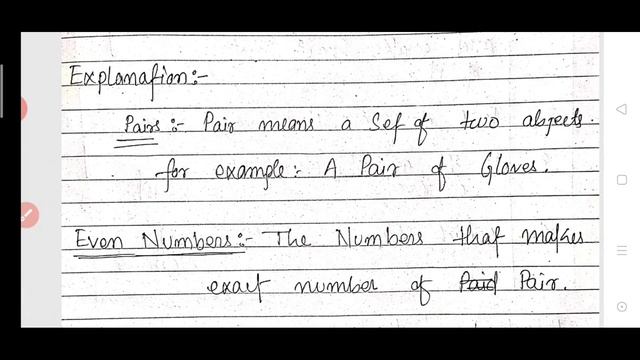 Explanation:-
Pairs :- Pair means a Set of two abjects.
for example:- A Pair of Gloves.
Even Numbers:- The Numbers that makes
exact number of Paid Pair.